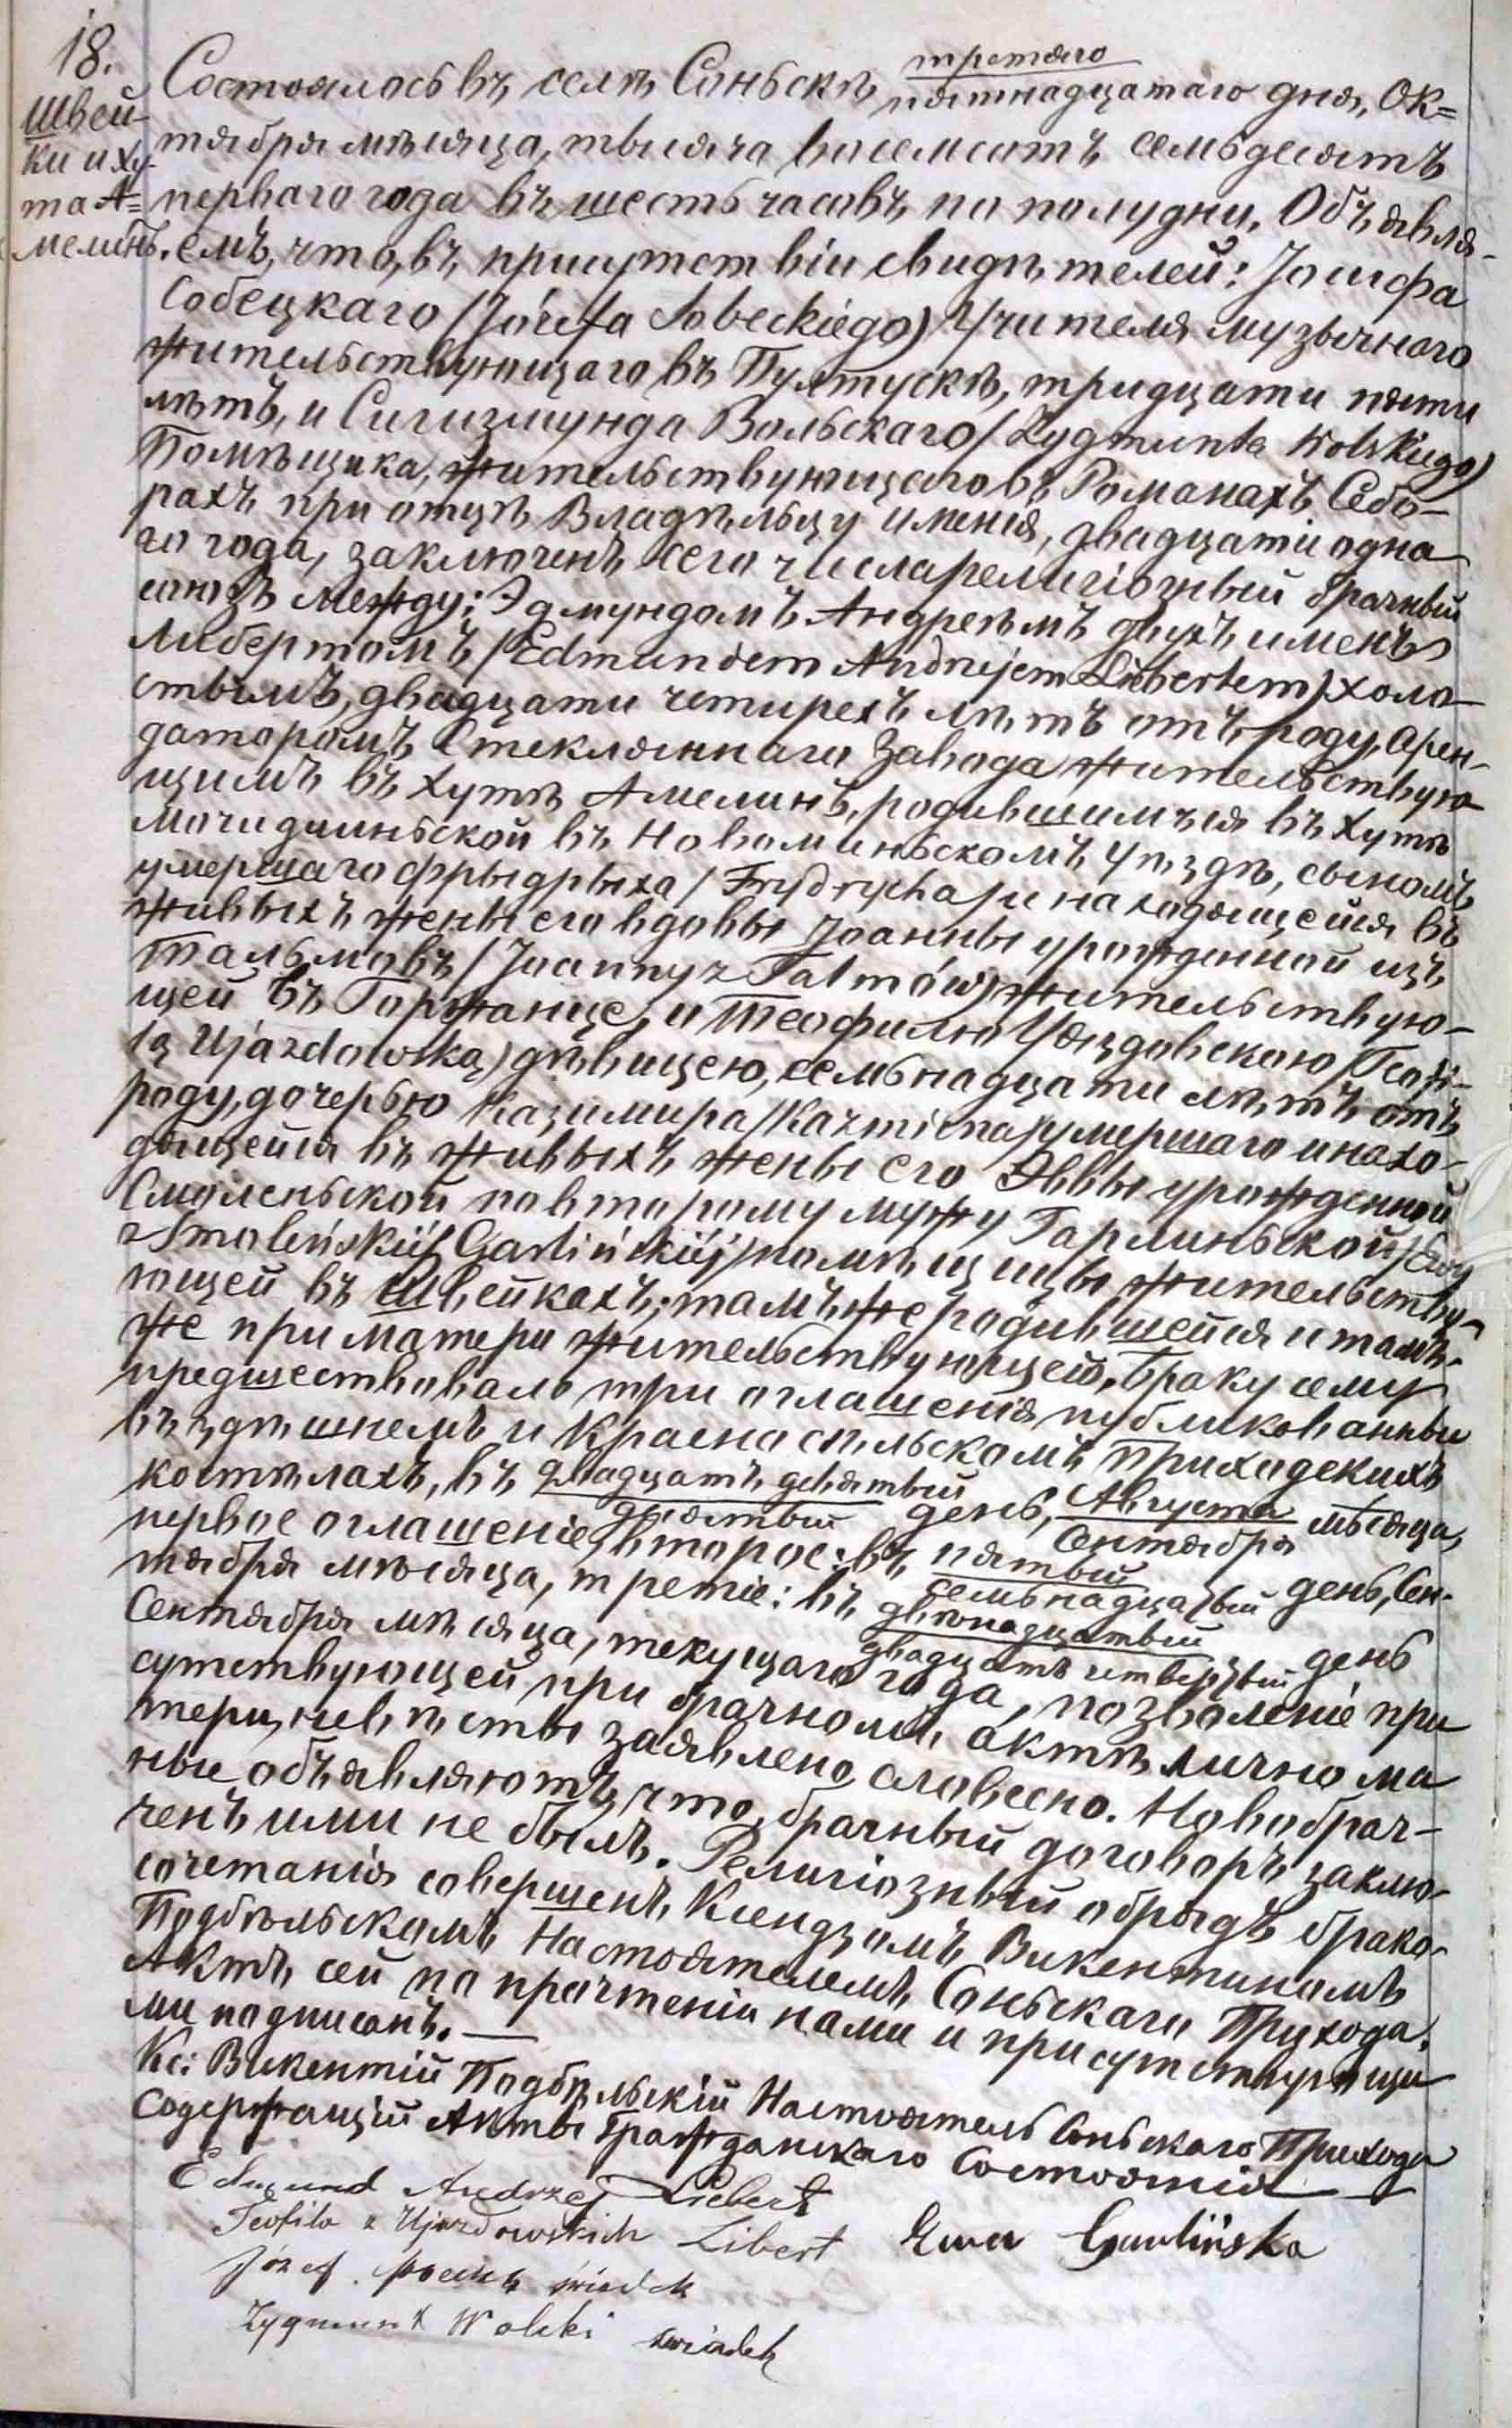 18.
Швей-
ки и Ху-
та А=
мелинъ.
третяго
Состоялось въ селѣ Соньскѣ пятнадцатаго дня, Ок=
тября мѣсяца, тысяча восемсотъ семьдесятъ
перваго года въ шесть часовъ по полудни. Объявля-
емъ, что, въ присутствіи свидѣтелей: Іосифа
Собецкаго /Józefa Sobeckiego) Учителя музычнаго
жительствующаго въ Пултускѣ, тридцати пяти
лѣтъ, и Сигизмунда Вольскаго /Zygmunta Wolskiego)
Помѣщика, жительствующаго въ Романахъ Себо-
рахъ при отцѣ Владѣльцу именія, двадцати одна
го года, заключенъ сего числа религіозный брачный
союзъ между: Эдмундомъ Андреѣмъ двухъ именъ
Либертомъ /Edmundem Andrzejem Libertem) холо-
стымъ, двадцати четырехъ лѣтъ отъ роду, Арен-
даторомъ Стекляннаго Завода жительствую
щимъ въ Хутѣ Амелинъ, родившимъся въ Хутѣ
Мочидлиньской въ Новоминьскомъ Уѣздѣ, сыномъ
умершаго Фрыдрыха /Frydrycha/ и находящейся въ
живыхъ жены его вдовы Іоанны урожденной изъ
Тальмовъ /Joanny z Talmów) жительствую-
щей въ Горжанце, и Теофилю Уяздовскою /Teofi-
lą Ujazdowską) дѣвицею, семьнадцати лѣтъ отъ
роду, дочерью Казимира /Kazmierza/ умершаго и нахо-
дящейся въ живыхъ жены его Эввы урожденной
Смоленьской по второму мужу Гарлиньской /Ewy
z Smoleńskiéj Garlińskiéj/ помѣщицы жительству-
ющей въ Швейкахъ; тамъ же родившейся и тамъ-
же при матери жительствующею, Браку сему
предшествовало три оглашенія публикованны
въ здѣшнемъ и Красносѣльскомъ Приходскихъ
костѣлахъ, въ двадцать девятый день, Августа мѣсяца,
десятый Сентября
первое оглашеніе, второе: въ пятый день, Сен-
семьнадцатый
тября мѣсяца, третіе: въ двѣнадцатый день
двадцать четвертый
Сентября мѣсяца, текущаго года, позволеніе при
сутствующей при брачномъ актѣ лично ма
тери, невѣсты заявлено словесно. Новобрач-
ные объявляютъ, что, брачный договоръ заклю-
ченъ ими не былъ. Религіозный обрядъ брако-
сочетанія совершенъ Ксендзомъ Викентиномъ
Подбѣльскомъ Настоятелемъ Соньскаго Прихода.
Актъ сей по прочтеніи нами и присутствующи
ми подписанъ. —
Кс: Викентій Подбѣльскій Настоятель Соньскаго Прихода
Содержащій Акты Гражданскаго Состоянія
Edmund Andrzej Liebert
Teofila z Ujazdowskich Libert Ewa Garlińska
Józef świadek
Zygmunt Wolski świadek